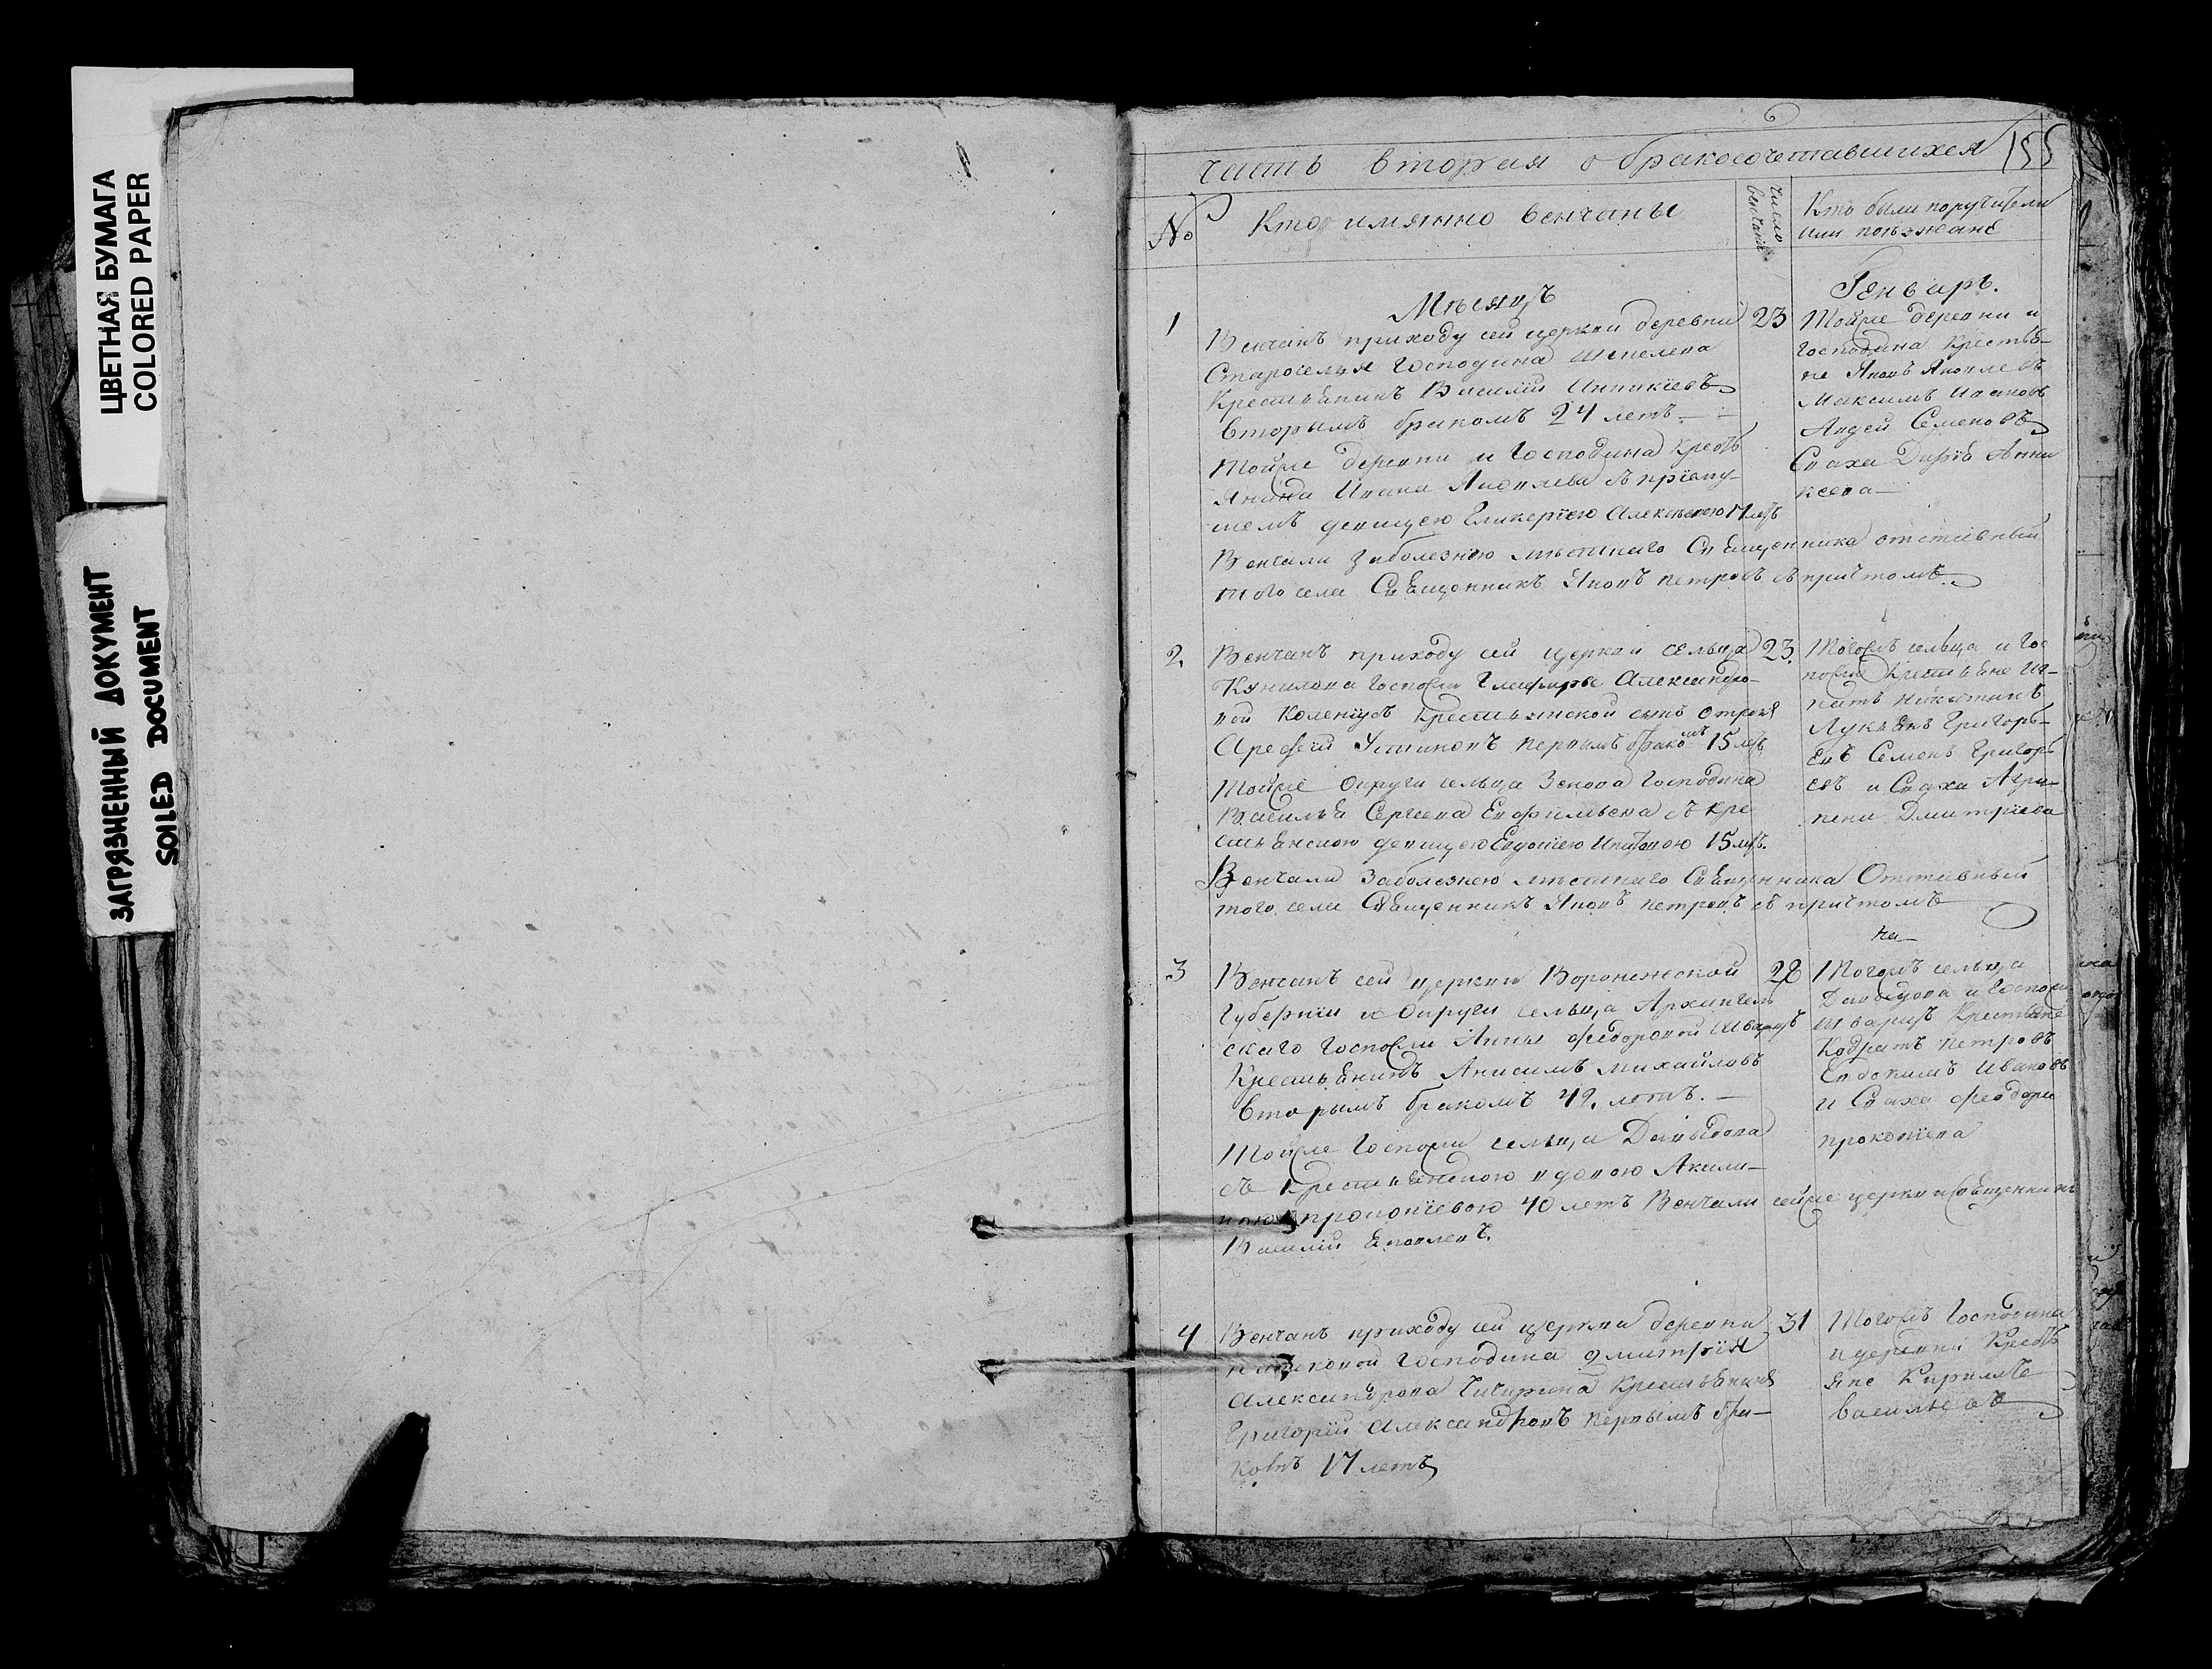 ЦВЕТНАЯ БУМАГА
COLORED PAPER
ЗАГРЯЗНЕННЫЙ ДОКУМЕНТ
SOILED DOCUMENT
часть вторая о бракосочетавшихся
155
№
Кто имянно венчаны
число венчания
Кто были поручители
или поезжане
Месяцъ
Генварь.
1
Венчанъ приходу сей церкви деревни
Староселья Господина Шепелева
Крестьянинъ Василий
вторымъ бракомъ 24 летъ
тойже деревни и Господина Кресть
янина Ивана Яковлева съ приему
шемъ девицею Гликериею Алексеевою 17 летъ
Венчали заболезнию местнаго Священника отставный
того села Священникъ Яковъ петровъ съ причтомъ
23
Тойже деревни и
господина крестья-
не Яковъ Яковлевъ
Максимъ Ивановъ
Авдей Семеновъ
Сваха Дарья
2.
Венчанъ приходу сей церкви сельца
Госпожи Глафиры Александро-
вой крестьянской сынъ отрокъ
Арефей Устиновъ первымъ бракомъ 15 летъ
тойже Округи сельца Господина
Василья Сергеева съ кре
стьянскою девицею Евдокиею 15 летъ.
Венчали Заболезнею местнаго Священника Отставный
того села Священникъ Яковъ петровъ съ причтомъ
23.
Тогожъ сельца и Гос
пожи Крестьяне Иг-
натъ Никитинъ
Лукьянъ Григорь-
евъ Семенъ Григорь
евъ и Сваха Агри-
пена Дмитриева
3
Венчанъ сей церкви Воронежской
Губернии и Округи сельца Архангель
скаго Госпожи Анны Федоровой Шварцъ
Крестьянинъ Анисимъ Михайловъ
вторымъ бракомъ 42, летъ. —
Тойже Госпожи сельца Давыдова
съ Крестьянскою вдовою Акили-
ною прокопиевою 40 летъ Венчали сейже церкви Священникъ
Василий Яковлевъ.
28
Тогожъ сельца
Давыдова и Госпожи
Шварцъ Крестьяне
Кодратъ петровъ
Евдокимъ Ивановъ
и Сваха Феодора
прокопиева
4
Венчанъ приходу сей церкви деревни
Господина Дмитрия
Александрова Чичерина Крестьянинъ
Григорий Александровъ первымъ бра-
комъ 17 летъ
31
Тогожъ Господина
и деревни Кресть
яне Кирилъ
Васильевъ